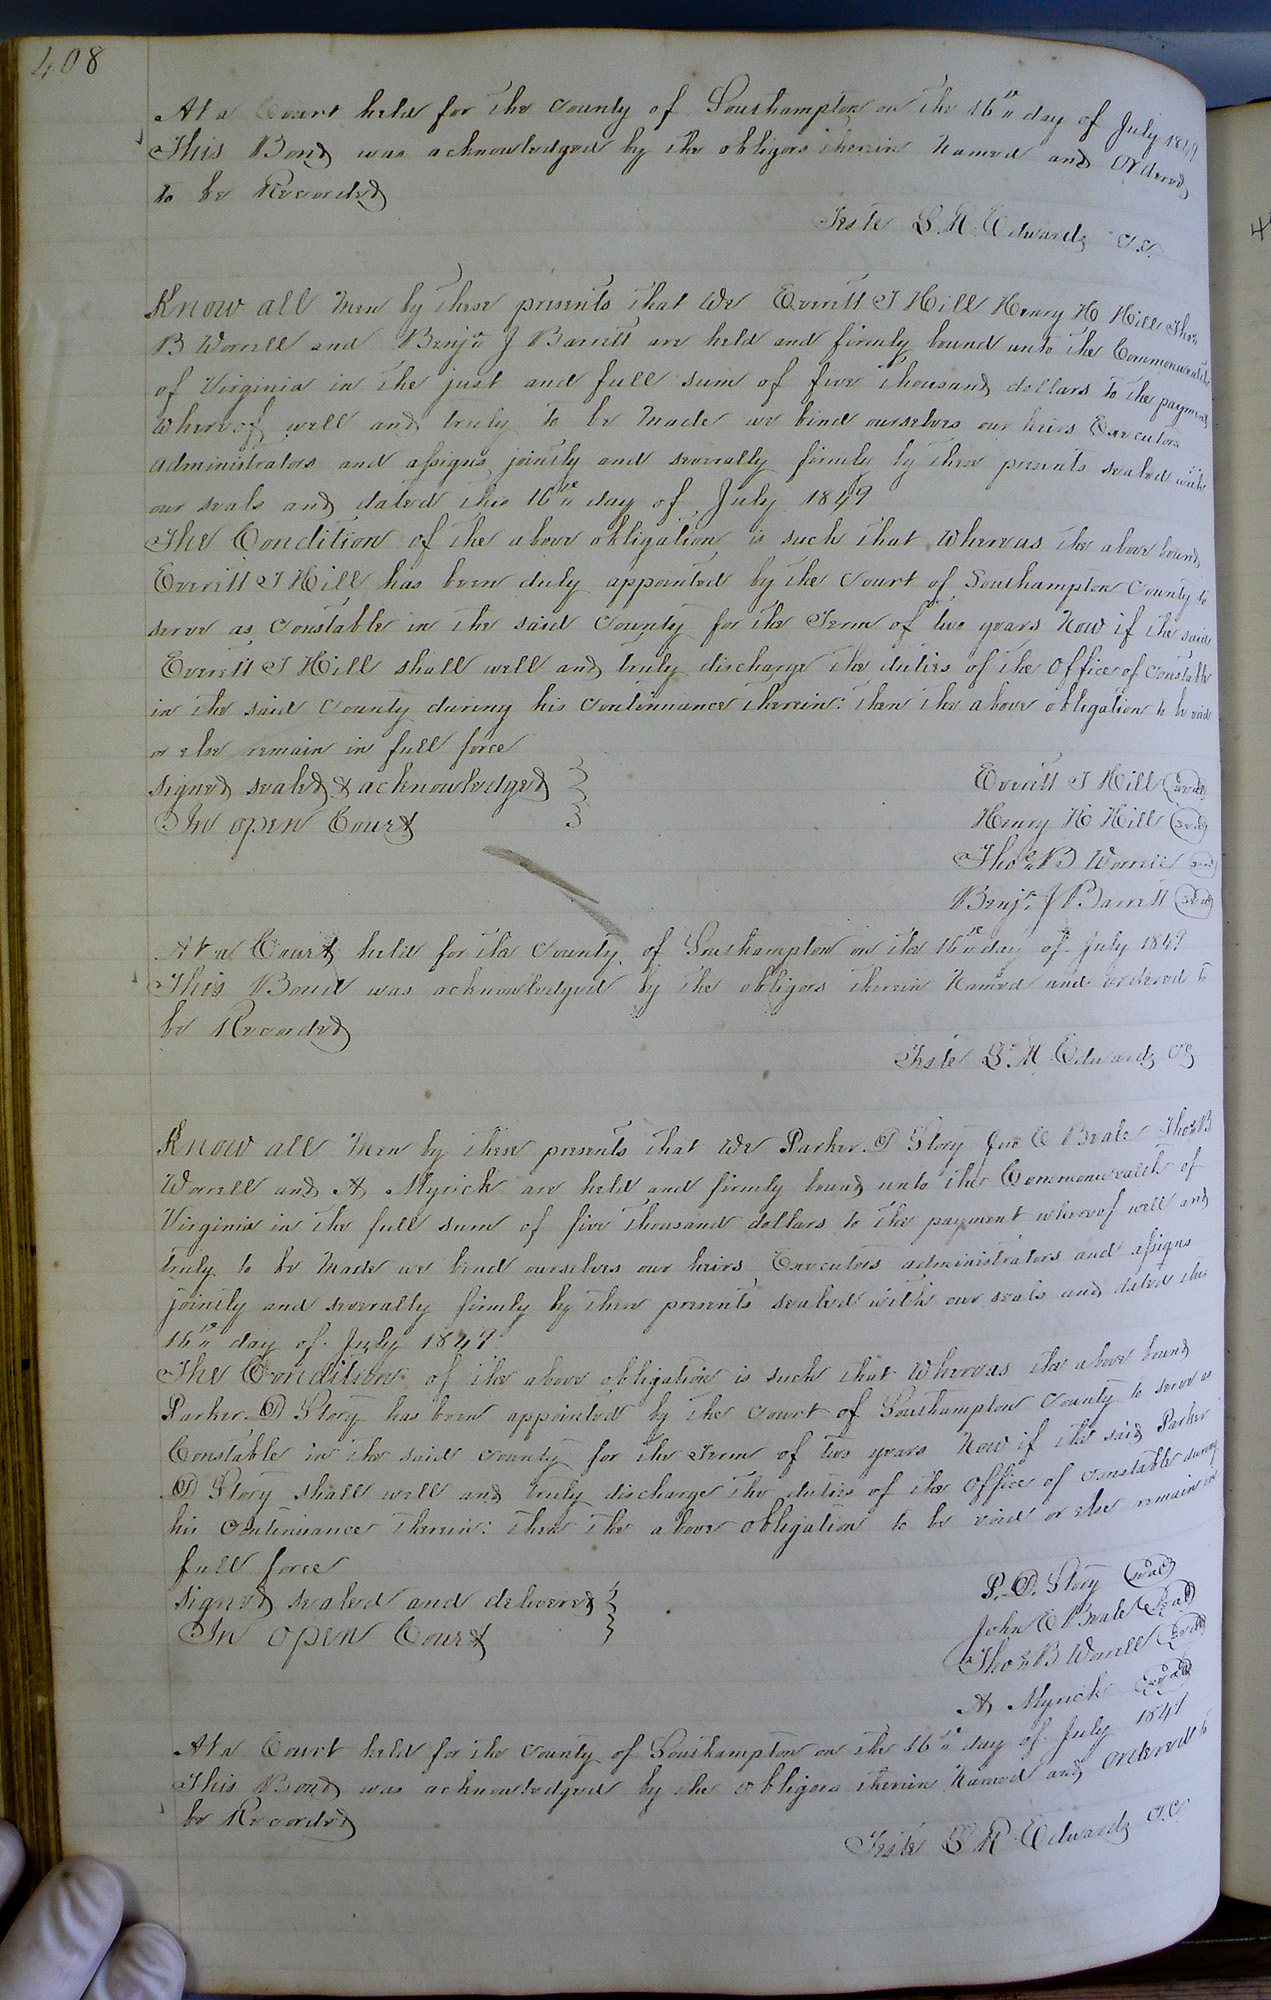 408
At a Court held for the County of Southampton on the 16th day of July 1849
This Bond was acknowledged by the obligors therein Named and Ordered
to be Recorded
Teste L. R. Edwards C.C.
Know all Men by these presents that We Everitt T Hill Henry H Hill Thos
B Worrell and Benjn J Barrett are held and firmly bound unto the Commonwealth
of Virginia in the just and full sum of five Thousand dollars to the payment
whereof well and truly to be Made we bind ourselves our heirs Executors
administrators and assigns jointly and severally firmly by these presents sealed with
our seals and dated this 16th day of July 1849
The Condition of the above obligation is such that Whereas the above bound
Everitt T Hill has been duly appointed by the Court of Southampton County to
serve as Constable in the said County for the Term of two years Now if the said
Everitt T Hill shall well and truly discharge the duties of the Office of Constable
in the said County during his Continuance therein: then the above obligation to be void
or else remain in full force
signed sealed & acknowledged
In open Court
Everitt T Hill (seal)
Henry H Hill (seal)
Thos B Worrell (seal)
Benjn J Barrett (seal)
At a Court held for the County of Southampton on the 16th day of July 1849
This Bond was acknowledged by the obligors therein Named and ordered to
be Recorded
Teste L. R. Edwards CC
Know all Men by these presents that We Parker D Story Jno E Beale Thos B
Worrell and A Myrick are held and firmly bound unto the Commonwealth of
Virginia in the full sum of five Thousand dollars to the payment whereof well and
truly to be Made we bind ourselves our heirs Executors administrators and assigns
jointly and severally firmly by these presents sealed with our seals and dated this
16th day of July 1849
The Condition of the above obligation is such that Whereas the above bound
Parker D Story has been appointed by the Court of Southampton County to serve as
Constable in the said County for the Term of two years Now if the said Parker
D Story shall well and truly discharge the duties of the Office of Constable during
his Continuance therein: then the above obligation to be void or else remain in
full force
signed sealed and delivered
In open Court
P. D. Story (seal)
John E Beale (seal)
Thos B Worrell (seal)
A Myrick (seal)
At a Court held for the County of Southampton on the 16th day of July 1849
This Bond was acknowledged by the obligors therein Named and Ordered to
be Recorded
Teste L R Edwards C.C.